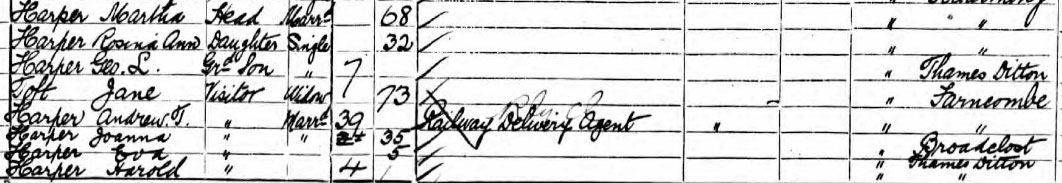 Harper Martha Head Marrd 68 " "
Harper Rosina Ann Daughter Single 32 " "
Harper Geo. L. Grd Son " 7 " Thames Ditton
Toft Jane Visitor Widow 73 - " Farncombe
Harper Andrew T. " Marrd 39 Railway Delivery Agent " " "
Harper Joanna " " 35 " Broadclost
Harper Eva " 5 " Thames Ditton
Harper Harold " 4 " "